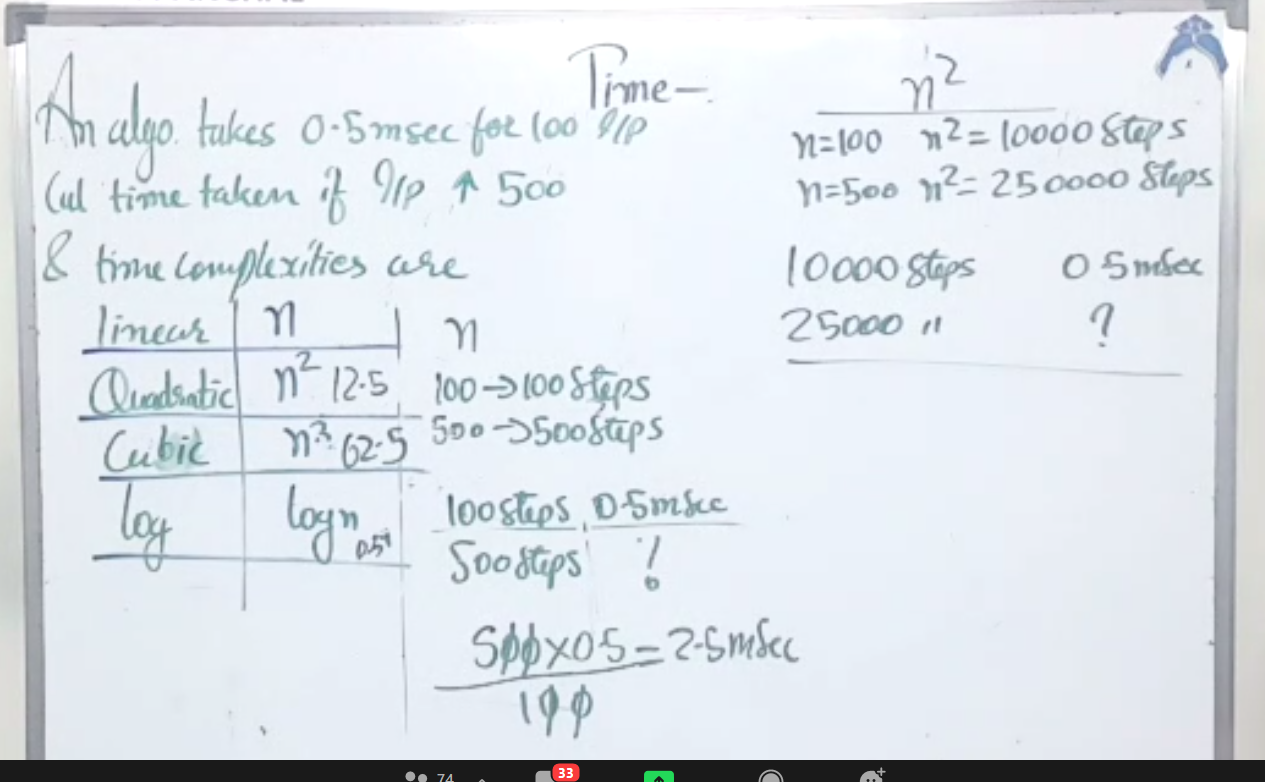 Time-
An algo. takes 0.5msec for 100 I/P
Cal time taken if I/P ↑ 500
& time complexities are
linear n
Quadratic n² 12.5
Cubic n³ 62.5
log logn
n
100→100 Steps
500→500 Steps
100 steps 0.5msec
500 steps ?
500×05=2.5msec
100
n²
n=100 n²=10000 Steps
n=500 n²=250000 Steps
10000 Steps 05msec
25000 " ?
74
33